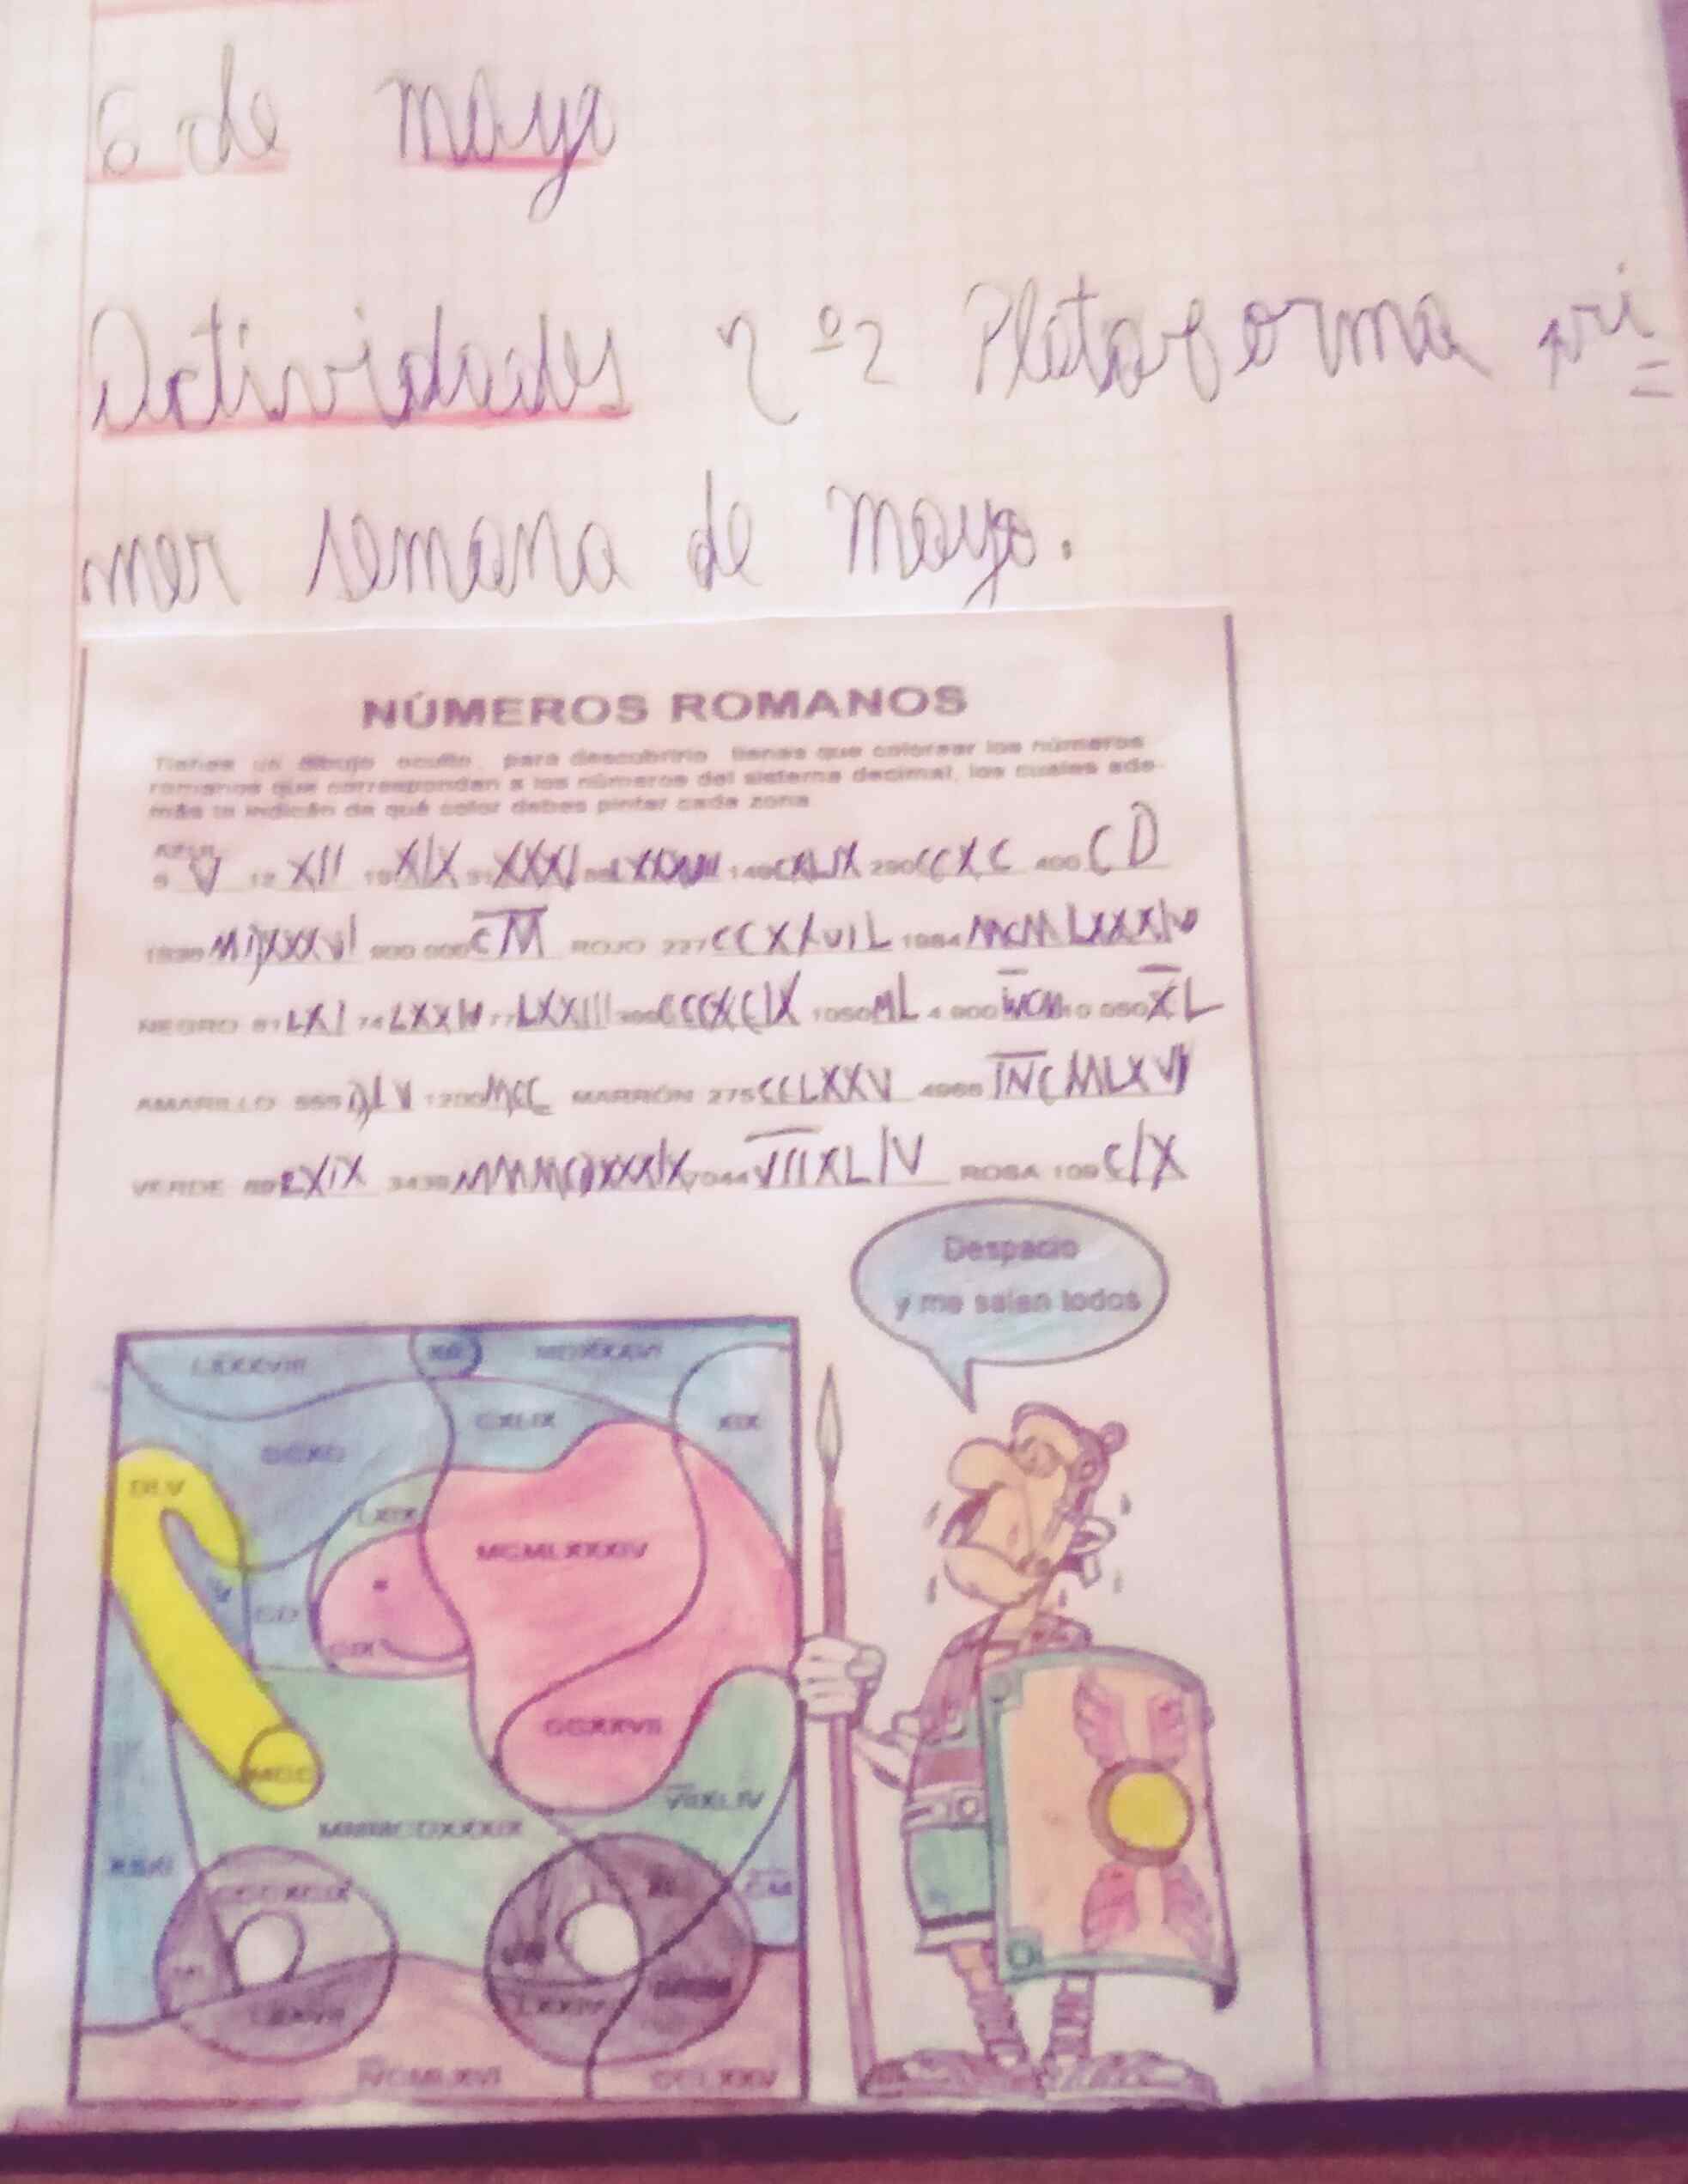 6 de mayo
Actividades nº2 Plataforma pri=
mer semana de mayo.
NÚMEROS ROMANOS
Tienes un dibujo oculto, para descubrirlo tienes que colorear los números
romanos que correspondan a los números del sistema decimal, los cuales ade-
más te indicán de qué color debes pintar cada zona
AZUL
5 V 12 XII 19 XIX 31 XXXI 88 LXXXVIII 149 CXLIX 290 CCXC 400 CD
1536 MDXXXVI 900 000 CM ROJO 227 1984 MCMLXXXIV
NEGRO 61 LXI 74 LXXIV 77 LXXIII 399 CCCXCIX 1050 ML 4 900 10 050 XL
AMARILLO 555 DLV 1200 MCC MARRÓN 275 CCLXXV 4966
VERDE 69 LXIX 3439 MMMCDXXXIX 7044 VIIXLIV ROSA 109 CIX
Despacio
y me salen todos
LXXXVIII XII MDXXXVI
CXLIX XIX
CCXC
DLV
LXIX
MCMLXXXIV
V CD
CIX
CCXXVII
MCC
VIIXLIV
MMMCDXXXIX
XXXI
CCCXCIX XL CM
LXXVII LXXIV
IVCMLXVI CCLXXV